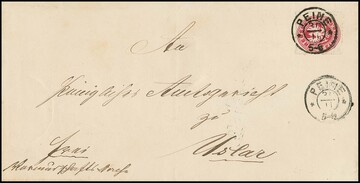 PEINE
5-6
An
Königliches Amtsgericht
zu
Uslar
Frei
PEINE